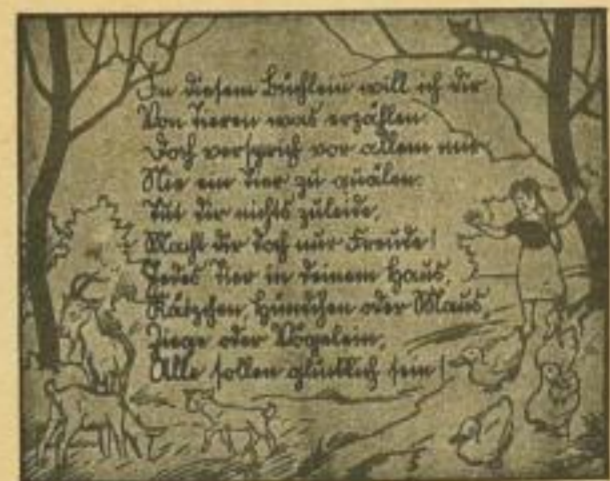 In diesem Büchlein will ich dir
Von Tieren was erzählen
Doch versprich vor allem mir
Nie ein Tier zu quälen.
Tut dir nichts zuleide,
Macht dir doch nur Freude!
Jedes Tier in deinem Haus,
Kätzchen, Hündchen oder Maus,
Ziege oder Vögelein,
Alle sollen glücklich sein!